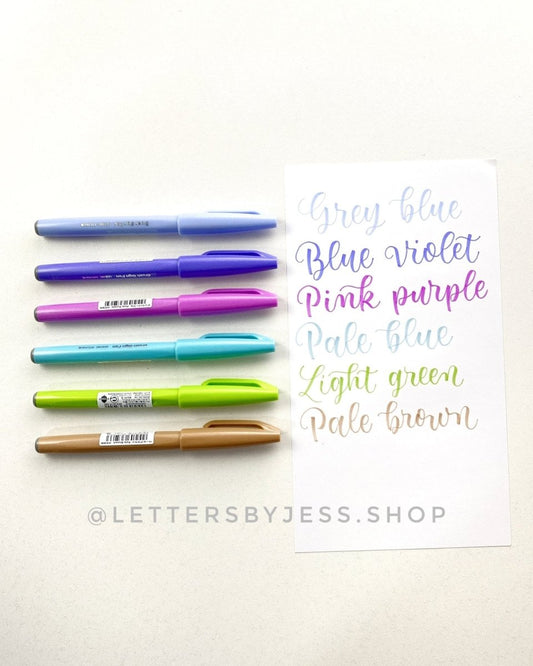 Grey blue
Blue violet
Pink purple
Pale blue
Light green
Pale brown
@LETTERSBYJESS.SHOP